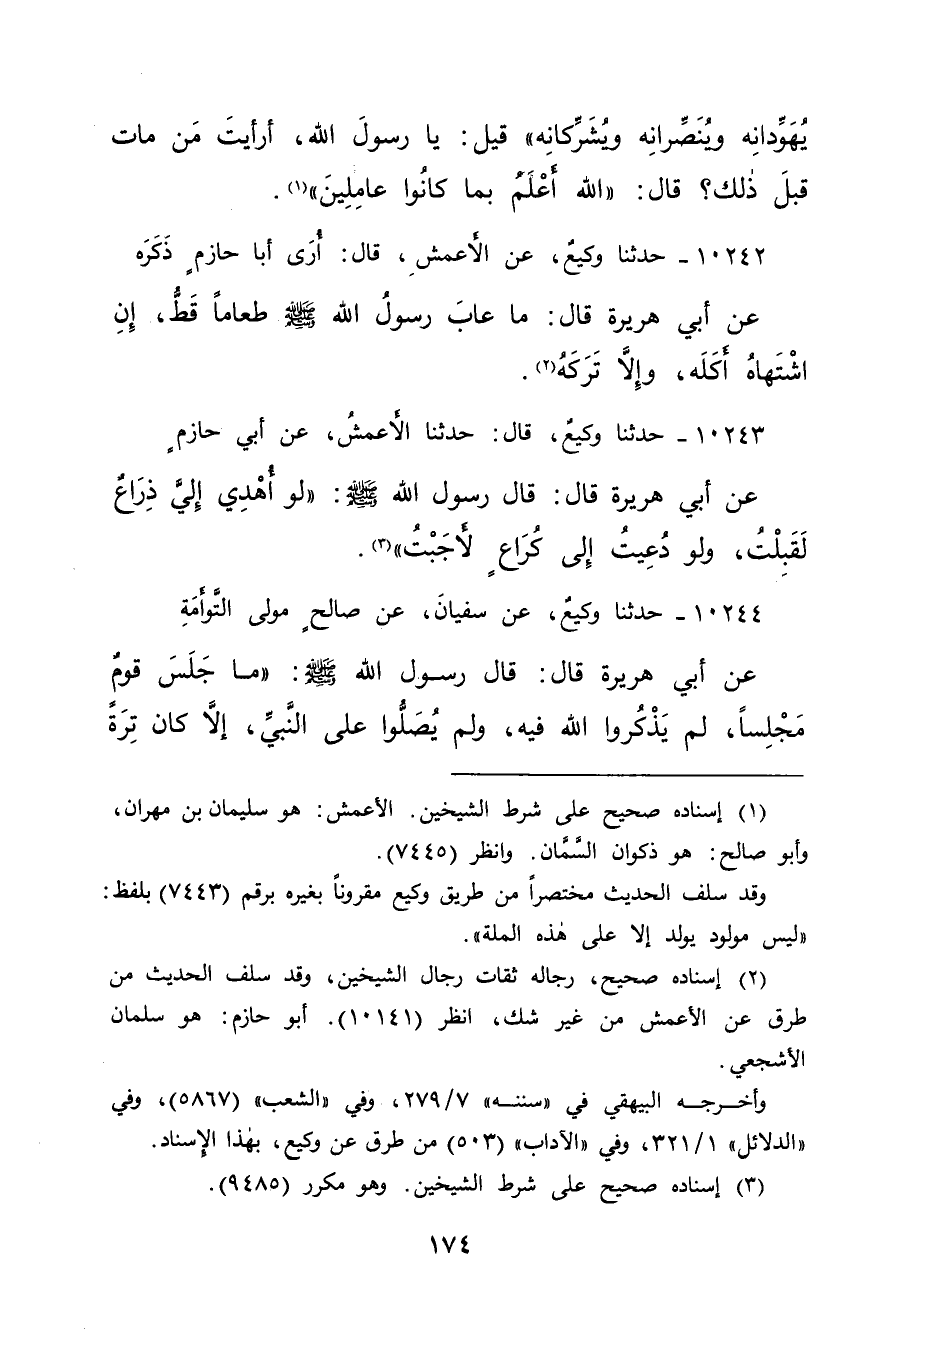 يُهَوِّدانِه ويُنَصِّرانِه ويُشَرِّكانِه» قيل: يا رسولَ الله، أرأيتَ مَن مات
قبلَ ذٰلك؟ قال: «الله أَعْلَمُ بما كانُوا عامِلِينَ»(١).
١٠٢٤٢ - حدثنا وكيعٌ، عن الأَعمشِ، قال: أُرَى أبا حازمٍ ذَكَرَه
عن أبي هريرة قال: ما عابَ رسولُ الله ﷺ طعاماً قَطُّ، إِنِ
اشْتَهاهُ أَكَلَه، وإِلَّا تَرَكَهُ(٢).
١٠٢٤٣ - حدثنا وكيعٌ، قال: حدثنا الأَعمشُ، عن أبي حازمٍ
عن أبي هريرة قال: قال رسول الله ﷺ: «لو أُهْدِي إِليَّ ذِرَاعٌ
لَقَبِلْتُ، ولو دُعِيتُ إِلى كُرَاعٍ لأَجَبْتُ»(٣).
١٠٢٤٤ - حدثنا وكيعٌ، عن سفيانَ، عن صالحٍ مولى التَّوأَمَةِ
عن أبي هريرة قال: قال رسول الله ﷺ: «ما جَلَسَ قومٌ
مَجْلِساً، لم يَذْكُروا الله فيه، ولم يُصَلُّوا على النَّبيِّ، إِلَّا كان تِرَةً
(١) إسناده صحيح على شرط الشيخين. الأعمش: هو سليمان بن مهران،
وأبو صالح: هو ذكوان السَّمَّان. وانظر (٧٤٤٥).
وقد سلف الحديث مختصراً من طريق وكيع مقروناً بغيره برقم (٧٤٤٣) بلفظ:
«ليس مولود يولد إلا على هٰذه الملة».
(٢) إسناده صحيح، رجاله ثقات رجال الشيخين، وقد سلف الحديث من
طرق عن الأعمش من غير شك، انظر (١٠١٤١). أبو حازم: هو سلمان
الأشجعي.
وأخرجه البيهقي في «سننه» ٢٧٩/٧، وفي «الشعب» (٥٨٦٧)، وفي
«الدلائل» ٣٢١/١، وفي «الآداب» (٥٠٣) من طرق عن وكيع، بهٰذا الإِسناد.
(٣) إسناده صحيح على شرط الشيخين. وهو مكرر (٩٤٨٥).
١٧٤